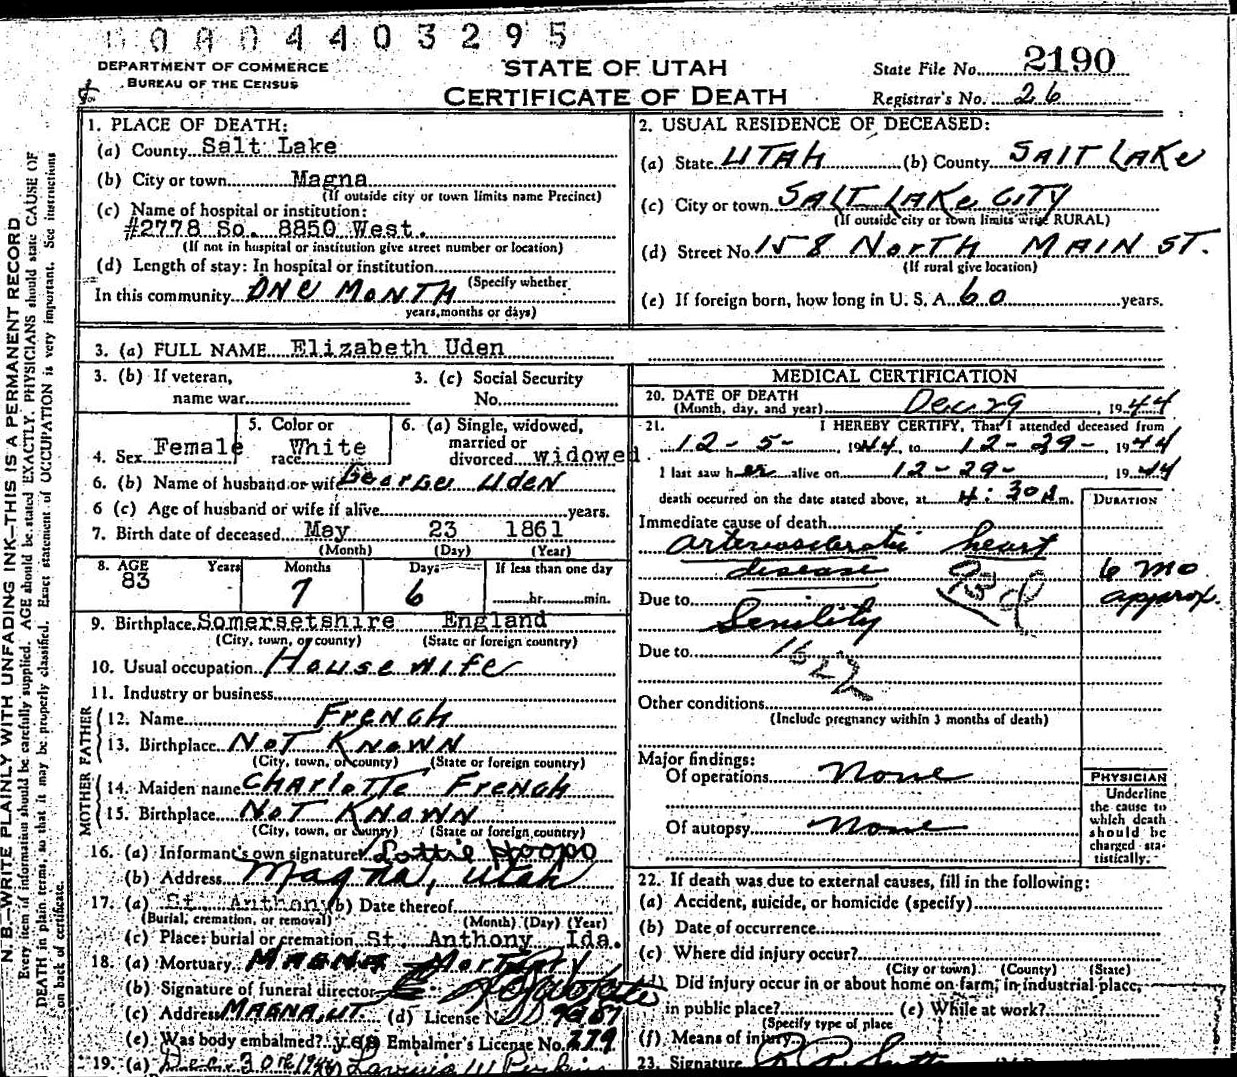 00004403295
DEPARTMENT OF COMMERCE
BUREAU OF THE CENSUS
STATE OF UTAH
CERTIFICATE OF DEATH
State File No. 2190
Registrar's No. 26
N. B.—WRITE PLAINLY WITH UNFADING INK—THIS IS A PERMANENT RECORD
Every item of information should be carefully supplied. AGE should be stated EXACTLY. PHYSICIANS should state CAUSE OF
DEATH in plain terms, so that it may be properly classified. Exact statement of OCCUPATION is very important. See instructions
on back of certificate.
1. PLACE OF DEATH:
(a) County Salt Lake
(b) City or town Magna
(If outside city or town limits name Precinct)
(c) Name of hospital or institution:
#2778 So. 8850 West.
(If not in hospital or institution give street number or location)
(d) Length of stay: In hospital or institution
(Specify whether
In this community ONE MONTH
years, months or days)
2. USUAL RESIDENCE OF DECEASED:
(a) State UTAH (b) County SALT LAKE
(c) City or town SALT LAKE CITY
(If outside city or town limits write RURAL)
(d) Street No. 158 NORTH MAIN ST.
(If rural give location)
(e) If foreign born, how long in U. S. A. 60 years.
3. (a) FULL NAME Elizabeth Uden
3. (b) If veteran, name war
3. (c) Social Security No.
4. Sex Female
5. Color or race White
6. (a) Single, widowed, married or divorced widowed
6. (b) Name of husband or wife George Uden
6 (c) Age of husband or wife if alive years.
7. Birth date of deceased May 23 1861
(Month) (Day) (Year)
8. AGE Years Months Days If less than one day
83 7 6 hr. min.
9. Birthplace Somersetshire England
(City, town, or county) (State or foreign country)
10. Usual occupation House wife
11. Industry or business
FATHER
12. Name French
13. Birthplace NOT KNOWN
(City, town, or county) (State or foreign country)
MOTHER
14. Maiden name Charlotte French
15. Birthplace NOT KNOWN
(City, town, or county) (State or foreign country)
16. (a) Informant's own signature Lottie Hoopo
(b) Address Magna, Utah
17. (a) St. Anthony (b) Date thereof
(Burial, cremation, or removal) (Month) (Day) (Year)
(c) Place: burial or cremation St. Anthony Ida.
18. (a) Mortuary MAGNA Mortuary
(b) Signature of funeral director
(c) Address MAGNA, UT. (d) License No.
(e) Was body embalmed? yes Embalmer's License No. 279
19. (a) Dec. 30th 1944 Lavinia W Perkins
MEDICAL CERTIFICATION
20. DATE OF DEATH
(Month, day, and year) Dec. 29, 1944
21. I HEREBY CERTIFY, That I attended deceased from
12-5-, 1944, to 12-29-, 1944
I last saw her alive on 12-29-, 1944
death occurred on the date stated above, at 4:30 A m.
DURATION
Immediate cause of death
arteriosclerotic heart
disease
6 mo approx.
Due to
Senility
Due to 1622
Other conditions
(Include pregnancy within 3 months of death)
Major findings:
Of operations None
Of autopsy None
PHYSICIAN
Underline
the cause to
which death
should be
charged sta-
tistically.
22. If death was due to external causes, fill in the following:
(a) Accident, suicide, or homicide (specify)
(b) Date of occurrence
(c) Where did injury occur?
(City or town) (County) (State)
(d) Did injury occur in or about home on farm, in industrial place,
in public place? (e) While at work?
(Specify type of place
(f) Means of injury
23. Signature